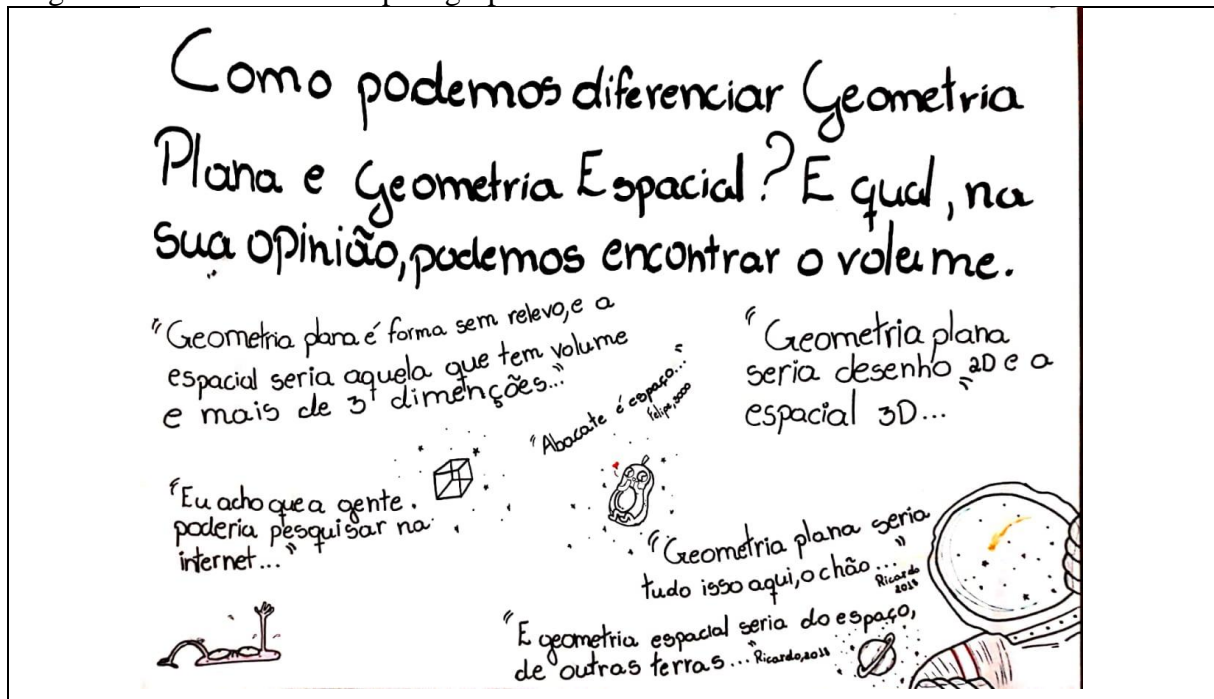 Como podemos diferenciar Geometria
Plana e Geometria Espacial? E qual, na
sua opinião, podemos encontrar o volume.
"Geometria plana é forma sem relevo, e a
espacial seria aquela que tem volume
e mais de 3 dimenções..."
"Abacate é espaço..."
Felipe,
"Geometria plana
seria desenho 2D e a
espacial 3D..."
"Eu acho que a gente
poderia pesquisar na
internet..."
"Geometria plana seria
tudo isso aqui, o chão..."
Ricardo
2018
"E geometria espacial seria do espaço,
de outras terras..." Ricardo, 2018